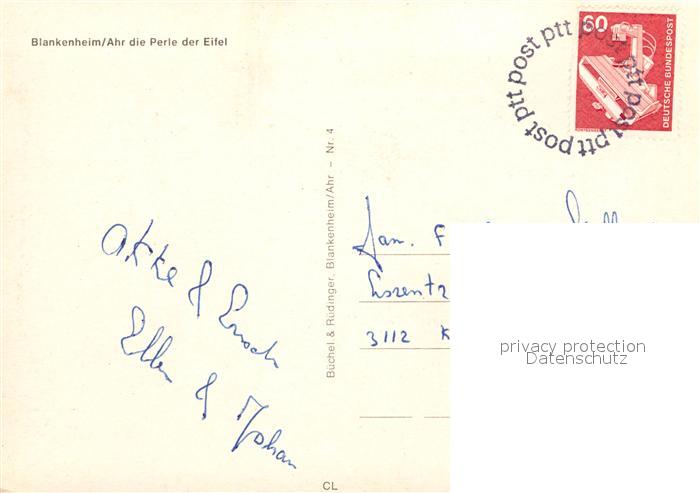 Blankenheim/Ahr die Perle der Eifel
60
DEUTSCHE BUNDESPOST
post ptt post ptt post ptt post ptt
Büchel & Rüdinger, Blankenheim/Ahr - Nr. 4
Akke &
Ellen & Johan
Fam. F
Lorentz
3112 K
privacy protection
Datenschutz
CL